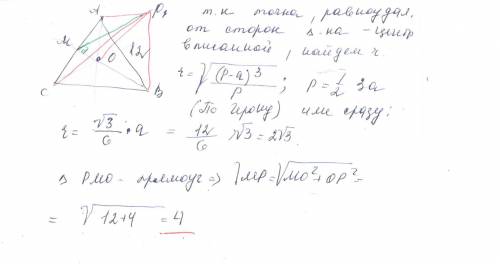 т.к точка, равноудал.
от сторон Δ-на - центр
вписанной, найдем r.
r = √((P-a)³/P) ; P = 1/2 3a
(По Герону) или сразу:
r = √3/6 · a = 12/6 · √3 = 2√3.
Δ PMO - прямоуг => MP = √(MO² + OP²) =
= √(12+4) = 4
A
P
M
12
O
C
B